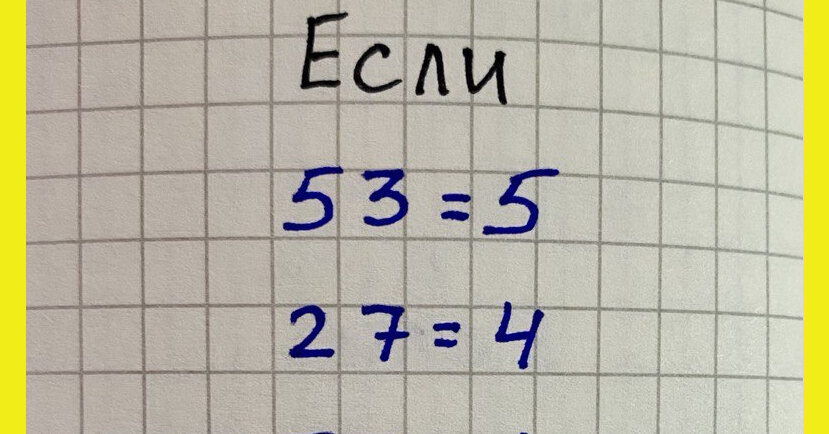 Если
53=5
27=4